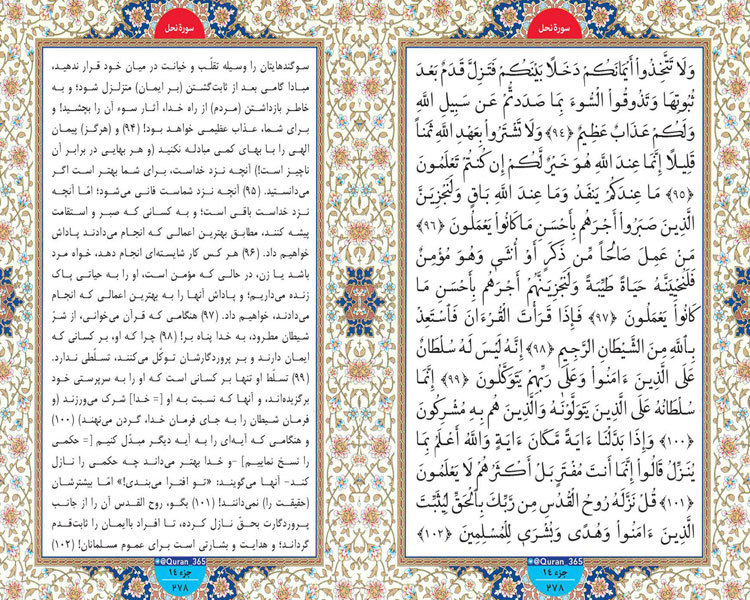 سورهٔ نحل
وَلَا تَتَّخِذُوٓا۟ أَيْمَانَكُمْ دَخَلًۢا بَيْنَكُمْ فَتَزِلَّ قَدَمٌۢ بَعْدَ
ثُبُوتِهَا وَتَذُوقُوا۟ ٱلسُّوٓءَ بِمَا صَدَدتُّمْ عَن سَبِيلِ ٱللَّهِ
وَلَكُمْ عَذَابٌ عَظِيمٌ ﴿٩٤﴾ وَلَا تَشْتَرُوا۟ بِعَهْدِ ٱللَّهِ ثَمَنًا
قَلِيلًا إِنَّمَا عِندَ ٱللَّهِ هُوَ خَيْرٌ لَّكُمْ إِن كُنتُمْ تَعْلَمُونَ
﴿٩٥﴾ مَا عِندَكُمْ يَنفَدُ وَمَا عِندَ ٱللَّهِ بَاقٍ وَلَنَجْزِيَنَّ
ٱلَّذِينَ صَبَرُوٓا۟ أَجْرَهُم بِأَحْسَنِ مَا كَانُوا۟ يَعْمَلُونَ ﴿٩٦﴾
مَنْ عَمِلَ صَالِحًا مِّن ذَكَرٍ أَوْ أُنثَىٰ وَهُوَ مُؤْمِنٌ
فَلَنُحْيِيَنَّهُ حَيَاةً طَيِّبَةً وَلَنَجْزِيَنَّهُمْ أَجْرَهُم بِأَحْسَنِ مَا
كَانُوا۟ يَعْمَلُونَ ﴿٩٧﴾ فَإِذَا قَرَأْتَ ٱلْقُرْءَانَ فَٱسْتَعِذْ
بِٱللَّهِ مِنَ ٱلشَّيْطَانِ ٱلرَّجِيمِ ﴿٩٨﴾ إِنَّهُ لَيْسَ لَهُ سُلْطَانٌ
عَلَى ٱلَّذِينَ ءَامَنُوا۟ وَعَلَىٰ رَبِّهِمْ يَتَوَكَّلُونَ ﴿٩٩﴾ إِنَّمَا
سُلْطَانُهُ عَلَى ٱلَّذِينَ يَتَوَلَّوْنَهُ وَٱلَّذِينَ هُم بِهِ مُشْرِكُونَ
﴿١٠٠﴾ وَإِذَا بَدَّلْنَآ ءَايَةً مَّكَانَ ءَايَةٍ وَٱللَّهُ أَعْلَمُ بِمَا
يُنَزِّلُ قَالُوٓا۟ إِنَّمَآ أَنتَ مُفْتَرٍ بَلْ أَكْثَرُهُمْ لَا يَعْلَمُونَ
﴿١٠١﴾ قُلْ نَزَّلَهُ رُوحُ ٱلْقُدُسِ مِن رَّبِّكَ بِٱلْحَقِّ لِيُثَبِّتَ
ٱلَّذِينَ ءَامَنُوا۟ وَهُدًى وَبُشْرَىٰ لِلْمُسْلِمِينَ ﴿١٠٢﴾
@Quran_365
جزء ١٤
٢٧٨
سورهٔ نحل
سوگندهایتان را وسیله تقلّب و خیانت در میان خود قرار ندهید،
مبادا گامی بعد از ثابت‌گشتن (بر ایمان) متزلزل شود؛ و به
خاطر بازداشتن (مردم) از راه خدا، آثار سوء آن را بچشید! و
برای شما، عذاب عظیمی خواهد بود! (۹۴) و (هرگز) پیمان
الهی را با بهای کمی مبادله نکنید (و هر بهایی در برابر آن
ناچیز است!) آنچه نزد خداست، برای شما بهتر است اگر
می‌دانستید. (۹۵) آنچه نزد شماست فانی می‌شود؛ امّا آنچه
نزد خداست باقی است؛ و به کسانی که صبر و استقامت
پیشه کنند، مطابق بهترین اعمالی که انجام می‌دادند پاداش
خواهیم داد. (۹۶) هر کس کار شایسته‌ای انجام دهد، خواه مرد
باشد یا زن، در حالی که مؤمن است، او را به حیاتی پاک
زنده می‌داریم؛ و پاداش آنها را به بهترین اعمالی که انجام
می‌دادند، خواهیم داد. (۹۷) هنگامی که قرآن می‌خوانی، از شرّ
شیطان مطرود، به خدا پناه بر! (۹۸) چرا که او، بر کسانی که
ایمان دارند و بر پروردگارشان توکّل می‌کنند، تسلّطی ندارد.
(۹۹) تسلّط او تنها بر کسانی است که او را به سرپرستی خود
برگزیده‌اند، و آنها که نسبت به او [= خدا] شرک می‌ورزند (و
فرمان شیطان را به جای فرمان خدا، گردن می‌نهند) (۱۰۰)
و هنگامی که آیه‌ای را به آیه دیگر مبدّل کنیم [= حکمی
را نسخ نماییم] -و خدا بهتر می‌داند چه حکمی را نازل
کند- آنها می‌گویند: «تو افترا می‌بندی!» امّا بیشترشان
(حقیقت را) نمی‌دانند! (۱۰۱) بگو، روح القدس آن را از جانب
پروردگارت بحقّ نازل کرده، تا افراد باایمان را ثابت‌قدم
گرداند؛ و هدایت و بشارتی است برای عموم مسلمانان! (۱۰۲)
@Quran_365
جزء ١٤
٢٧٨